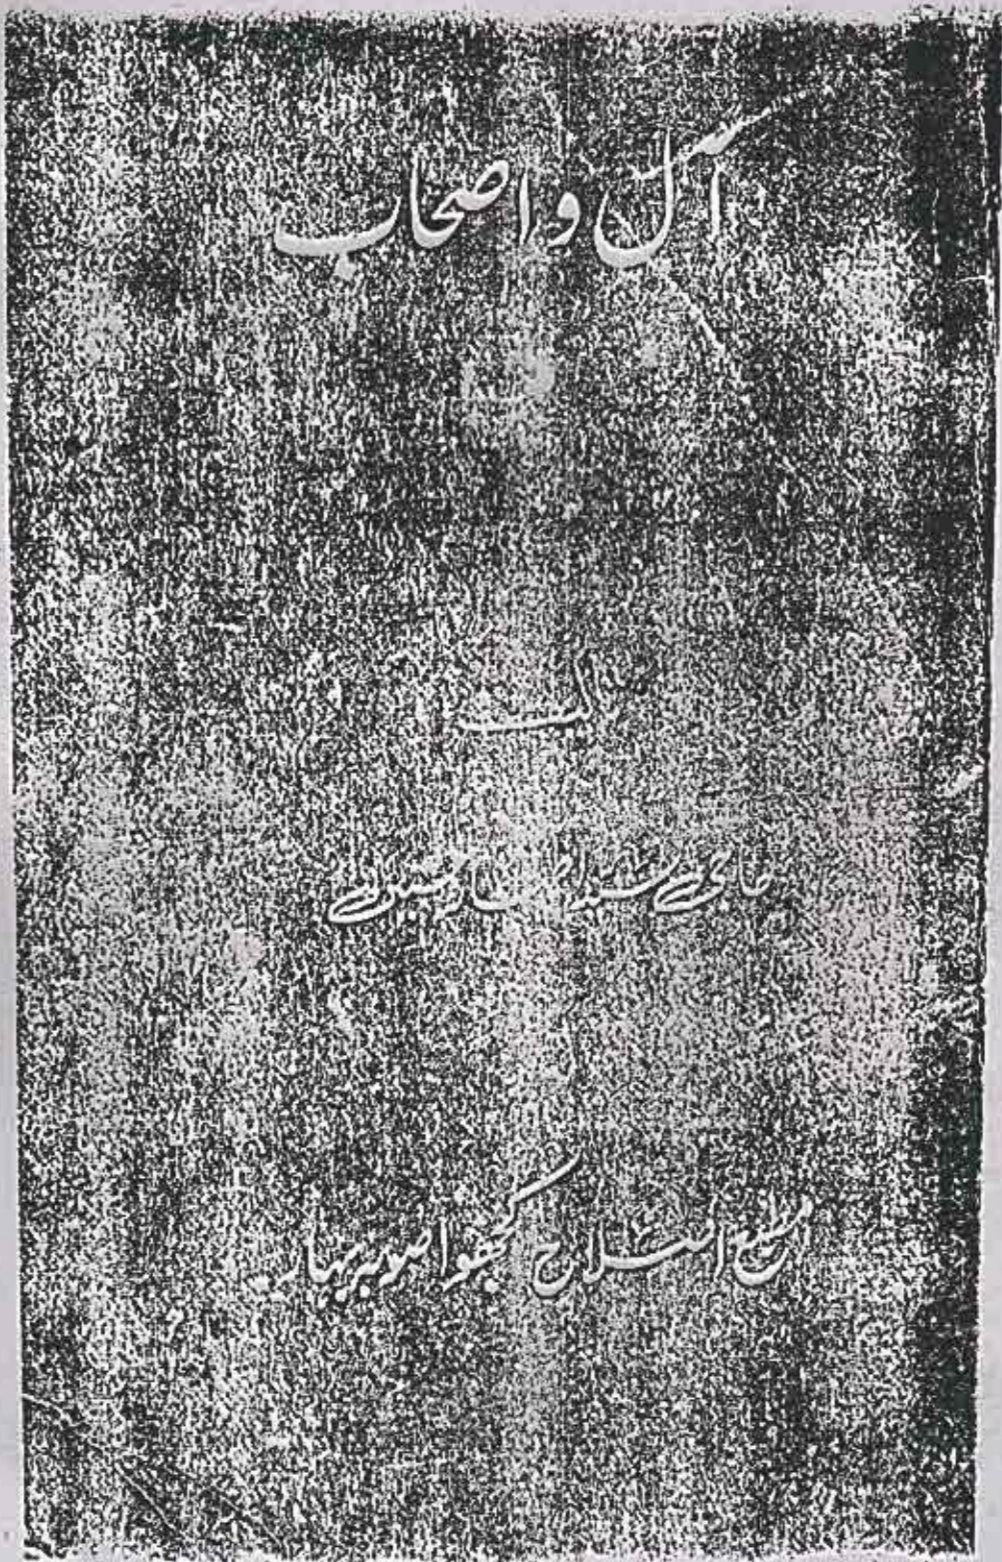 آل و اصحاب
تالیف
حاجی سید
مطبع اصلاح کھجوا صوبہ بہار